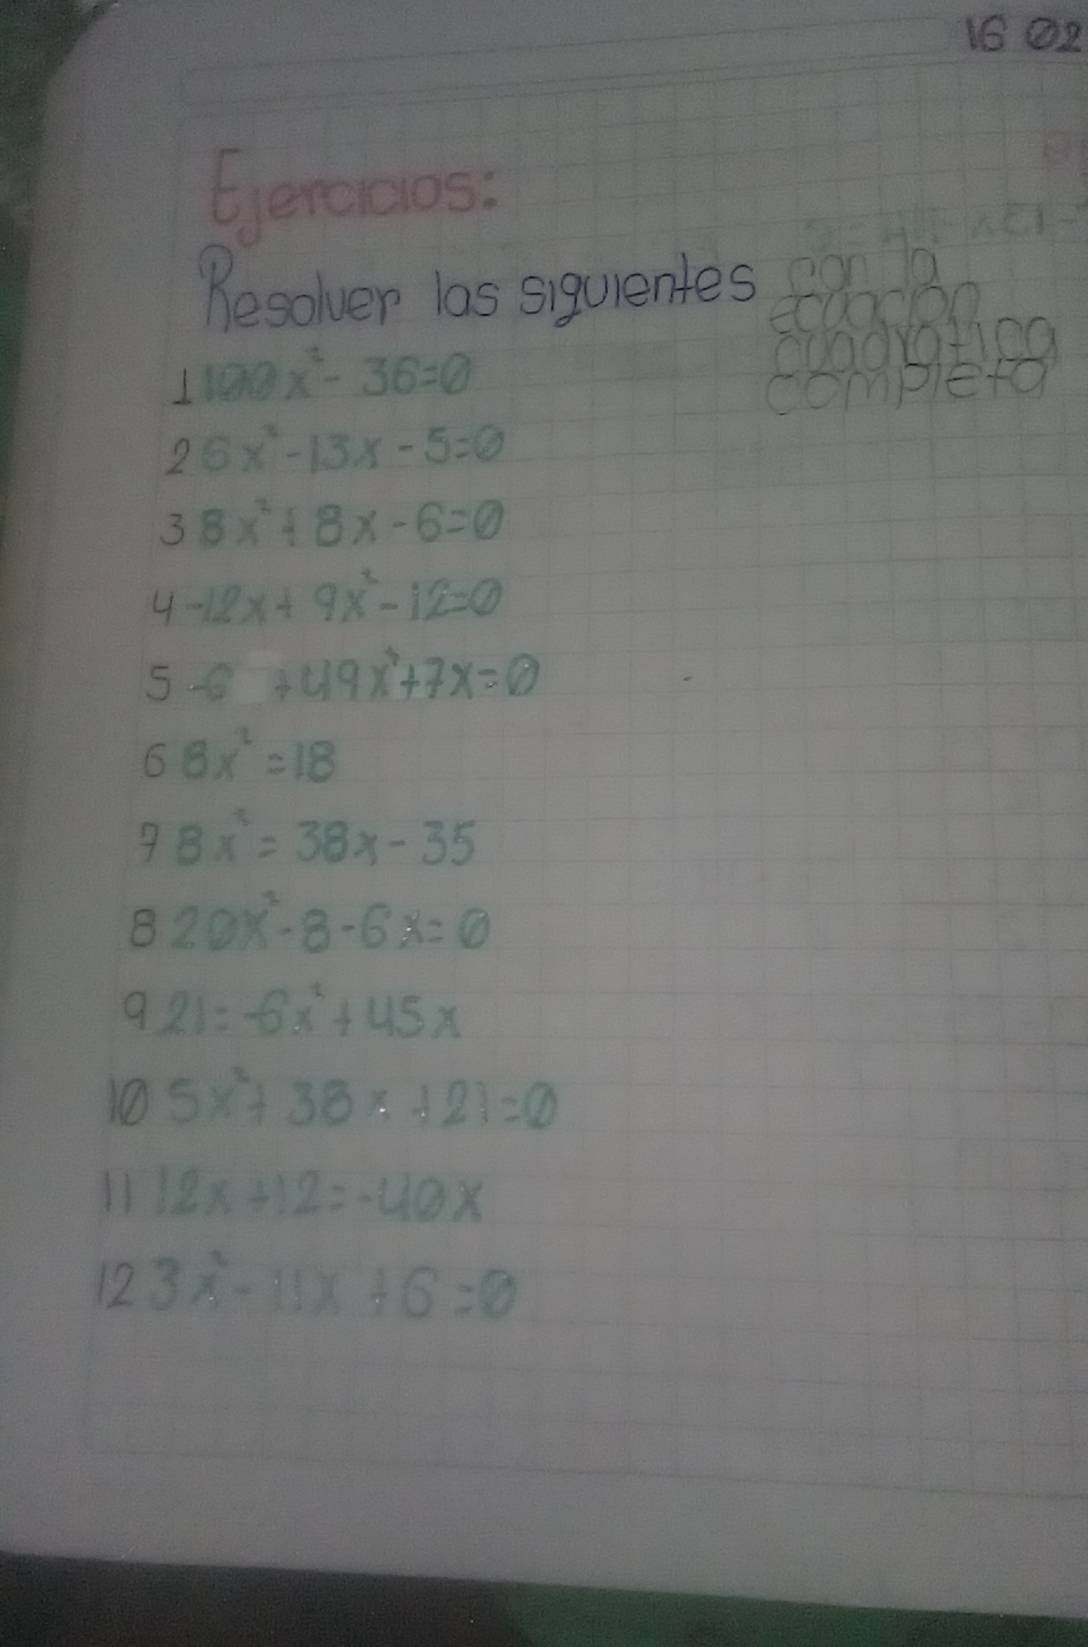 16 02
Ejercicios:
Resolver las siguientes con la
ecuación
cuadrática
completa
1 100x² - 36=0
2 6x² - 13x - 5=0
3 8x² + 8x - 6=0
4 -12x + 9x² - 12=0
5 -6 + 49x² + 7x=0
6 8x² = 18
7 8x² = 38x - 35
8 20x² - 8 - 6x = 0
9 21 = -6x² + 45x
10 5x² + 38x + 21=0
11 12x + 12 = -40x
12 3x² - 11x + 6 = 0